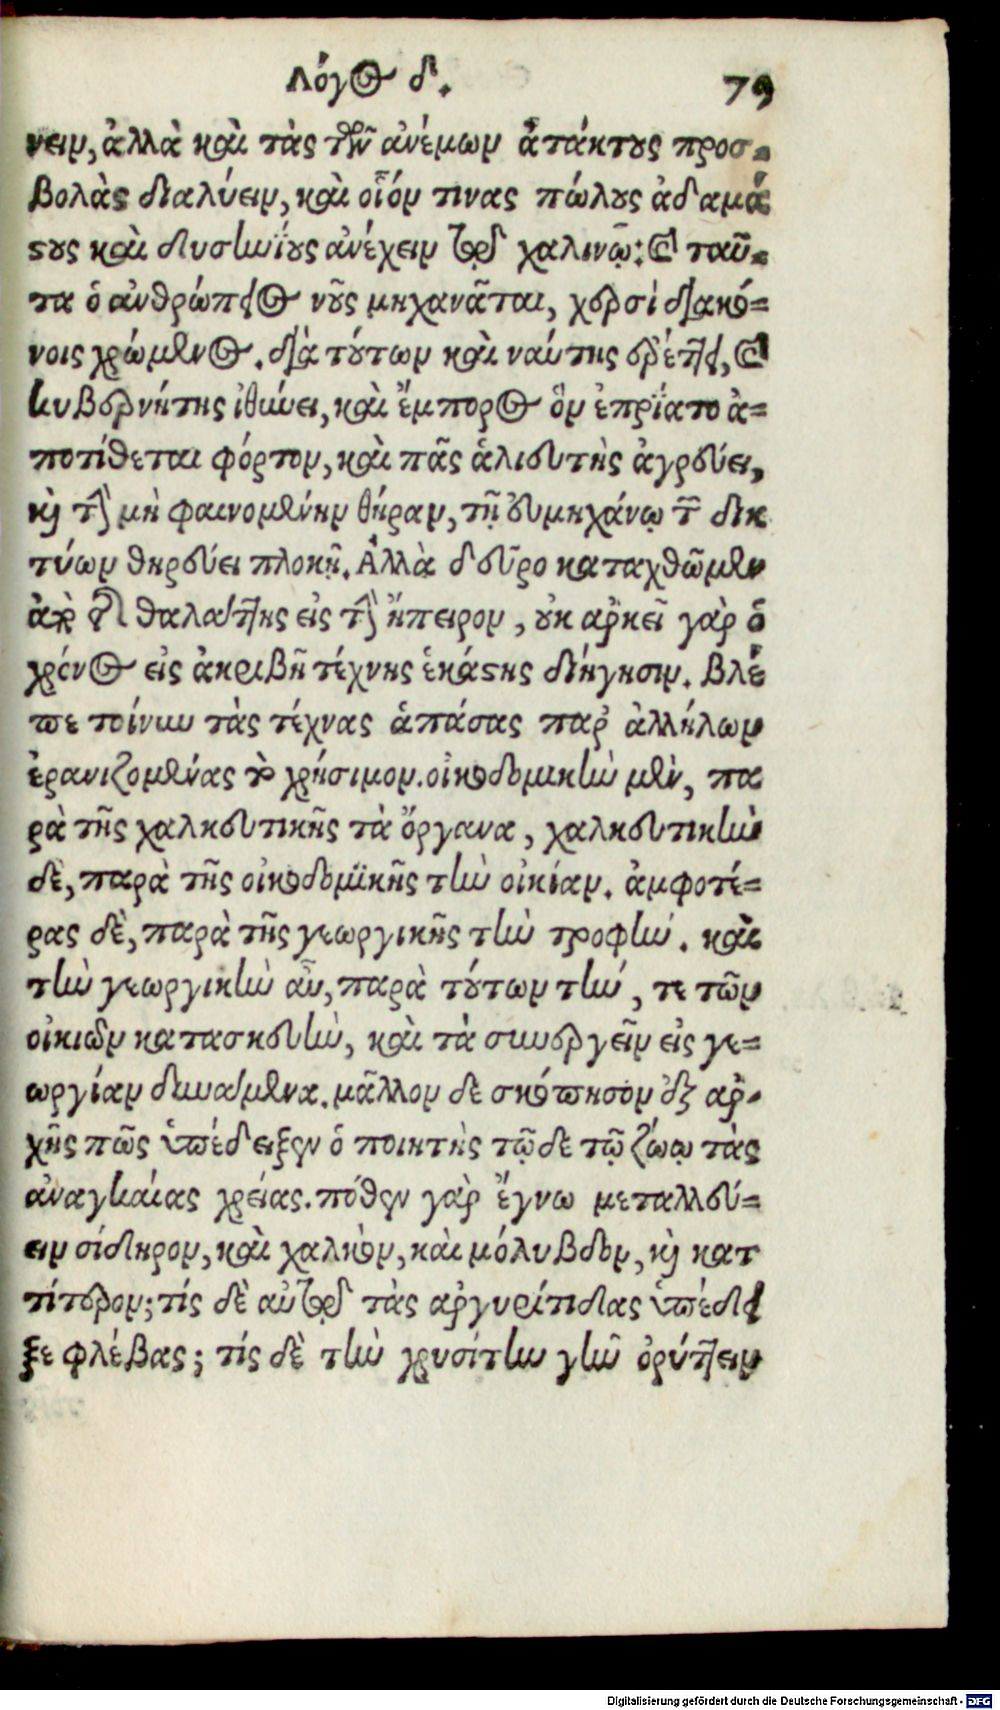 Λόγος δ. 79
νειν, ἀλλὰ καὶ τὰς τῶν ἀνέμων ἀτάκτους προσ-
βολὰς διαλύειν, καὶ οἷόν τινας πώλους ἀδαμά
στους καὶ δυσηνΐους ἀνέχειν τῷ χαλινῷ: καὶ ταῦ-
τα ὁ ἀνθρώπειος νοῦς μηχανᾶται, χερσὶ διακό-
νοις χρώμενος. διὰ τούτων καὶ ναύτης ἐρέττει, καὶ
κυβερνήτης ἰθύνει, καὶ ἔμπορος ὃν ἐπρΐατο ἀ-
ποτίθεται φόρτον, καὶ πᾶς ἁλιευτὴς ἀγρεύει,
καὶ τὴν μὴ φαινομένην θήραν, τῇ εὐμηχάνῳ τῶν δικ
τύων θηρεύει πλοκῇ. Ἀλλὰ δεῦρο καταχθῶμεν
ἀπὸ τῆς θαλάττης εἰς τὴν ἤπειρον, οὐκ ἀρκεῖ γὰρ ὁ
χρόνος εἰς ἀκριβῆ τέχνης ἑκάστης διήγησιν. βλέ
πε τοίνυν τὰς τέχνας ἁπάσας παρ' ἀλλήλων
ἐρανιζομένας τὸ χρήσιμον. οἰκοδομικὴν μὲν, πα
ρὰ τῆς χαλκευτικῆς τὰ ὄργανα, χαλκευτικὴν
δὲ, παρὰ τῆς οἰκοδομϊκῆς τὴν οἰκίαν. ἀμφοτέ-
ρας δὲ, παρὰ τῆς γεωργικῆς τὴν τροφήν. καὶ
τὴν γεωργικὴν αὖ, παρὰ τούτων τήν, τε τῶν
οἰκιῶν κατασκευὴν, καὶ τὰ συνεργεῖν εἰς γε-
ωργίαν δυνάμενα. μᾶλλον δὲ σκόπησον ἐξ ἀρ-
χῆς πῶς ὑπέδειξεν ὁ ποιητὴς τῷδε τῷ ζώῳ τὰς
ἀναγκαίας χρείας. πόθεν γὰρ ἔγνω μεταλλεύ-
ειν σίδηρον, καὶ χαλκὸν, καὶ μόλυβδον, καὶ κατ
τίτερον; τίς δὲ αὐτῷ τὰς ἀργυρίτιδας ὑπέδει
ξε φλέβας; τίς δὲ τὴν χρυσίτην γῆν ὀρύττειν
Digitalisierung gefördert durch die Deutsche Forschungsgemeinschaft - DFG